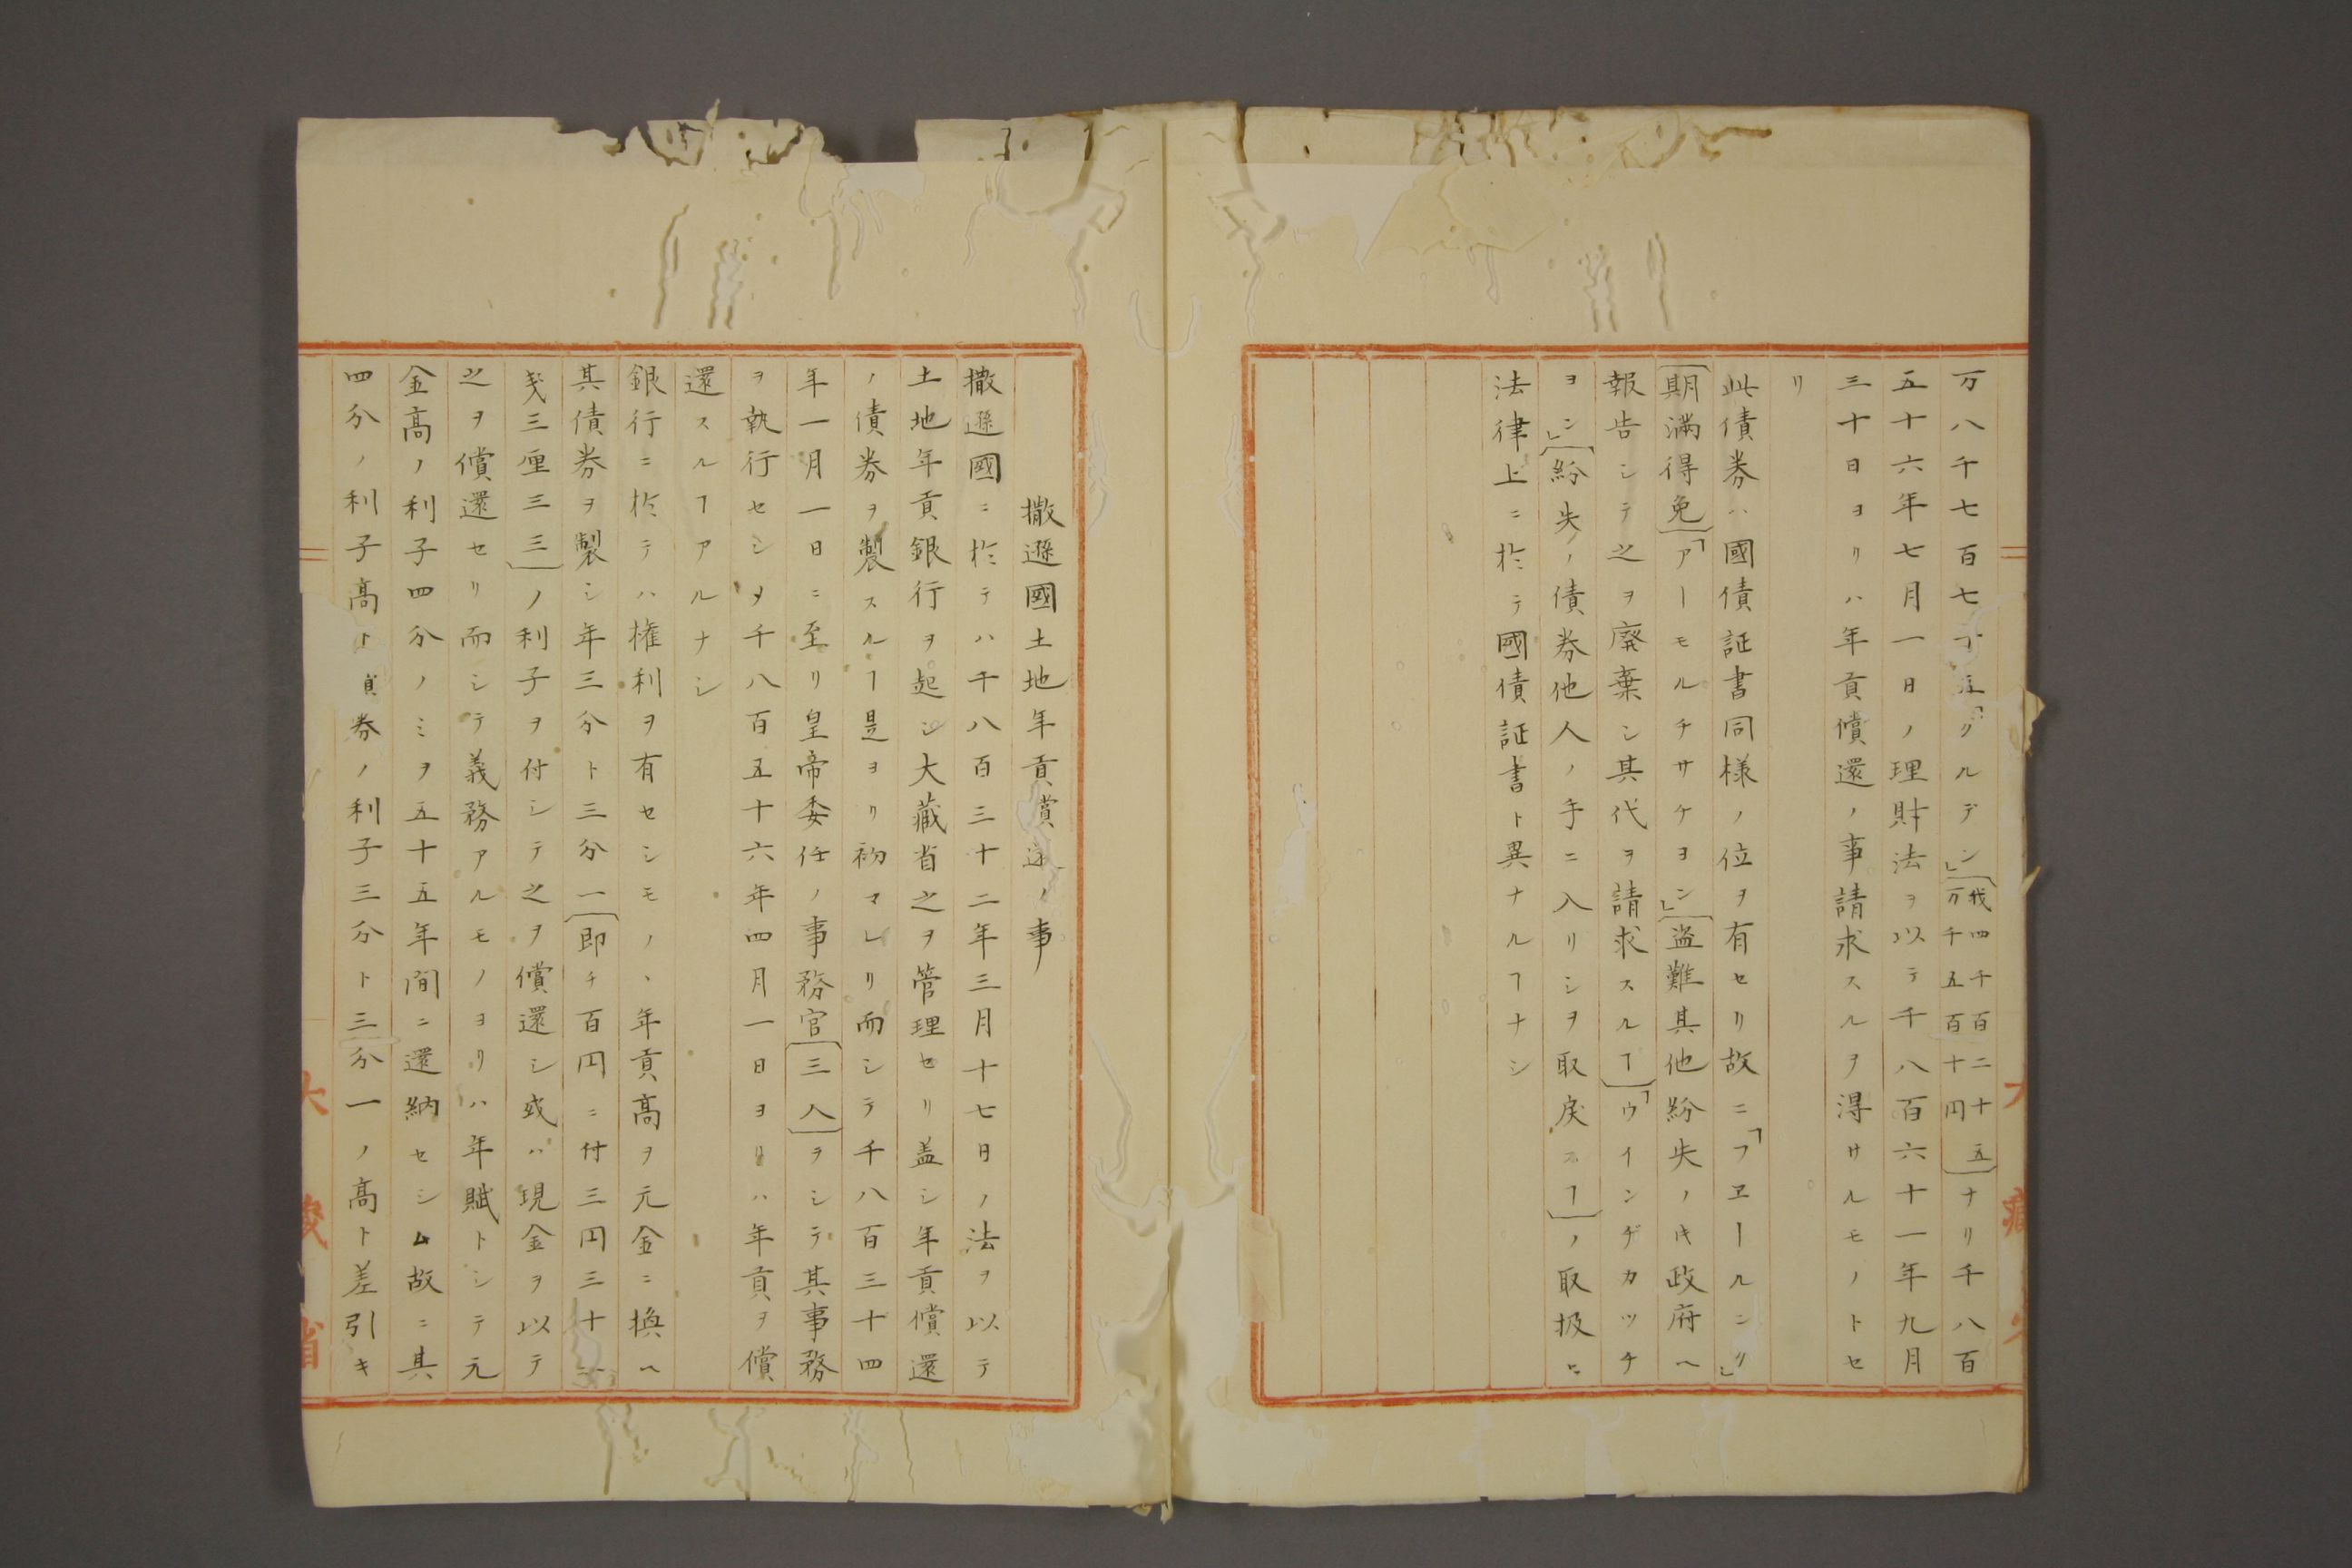 万八千七百七十「グルデン」〔我四千百二十五万千五百十円〕ナリ千八百
五十六年七月一日ノ理財法ヲ以テ千八百六十一年九月
三十日ヨリハ年貢償還ノ事請求スルヲ得サルモノトセ
リ
此債券ハ國債証書同様ノ位ヲ有セリ故ニ「フヱールニング」
〔期満得免〕「アーモルチサケヨン」〔盗難其他紛失ノ𪜈政府ヘ
報告シテ之ヲ廃棄シ其代ヲ請求スルヿ〕「ウインヂカツチ
ヲン」〔紛失ノ債券他人ノ手ニ入リシヲ取戻スヿ〕ノ取扱ヒ
法律上ニ於テ國債証書ト異ナルヿナシ
撒遜國土地年貢賞還ノ事
撒遜國ニ於テハ千八百三十二年三月十七日ノ法ヲ以テ
土地年貢銀行ヲ起シ大藏省之ヲ管理セリ盖シ年貢償還
ノ債券ヲ製スルヿ是ヨリ初マレリ而シテ千八百三十四
年一月一日ニ至リ皇帝委任ノ事務官〔三人〕ヲシテ其事務
ヲ執行セシメ千八百五十六年四月一日ヨリハ年貢ヲ償
還スルヿアルナシ
銀行ニ於テハ権利ヲ有セシモノヽ年貢高ヲ元金ニ換ヘ
其債券ヲ製シ年三分ト三分一〔即チ百円ニ付三円三十三
戋三厘三三〕ノ利子ヲ付シテ之ヲ償還シ或ハ現金ヲ以テ
之ヲ償還セリ而シテ義務アルモノヨリハ年賦トシテ元
金高ノ利子四分ノミヲ五十五年間ニ還納セシム故ニ其
四分ノ利子高ト債券ノ利子三分ト三分一ノ高ト差引キ
大藏省